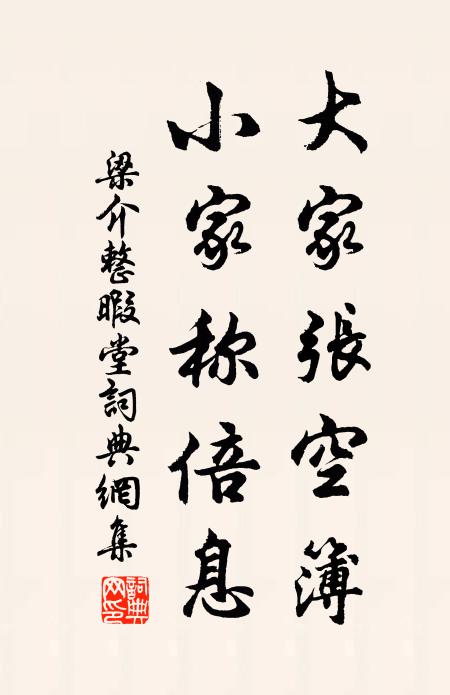 大家張空簿
小家称倍息
梁介整暇堂詞典網集
詞典网印